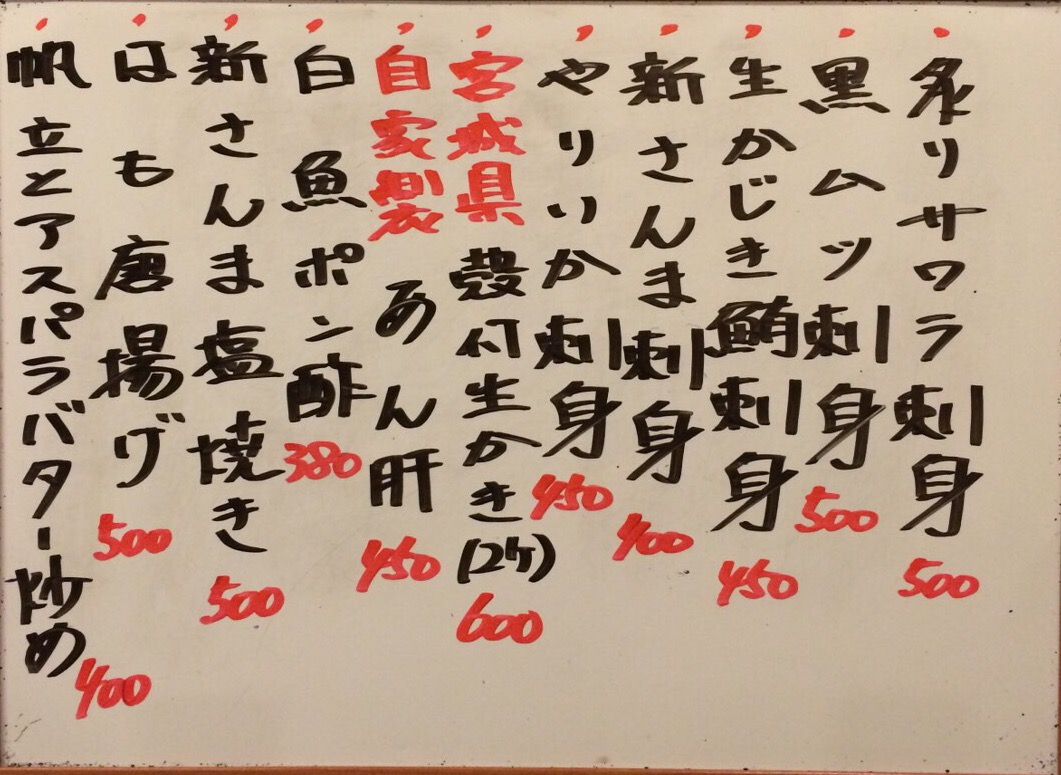 炙りサワラ刺身 500
黒ムツ刺身 500
生かじき鮪刺身 450
新さんま刺身 400
やりいか刺身 450
宮城県殻付生かき(2ケ) 600
自家製あん肝 450
白魚ポン酢 380
新さんま塩焼き 500
はも唐揚げ 500
帆立とアスパラバター炒め 400